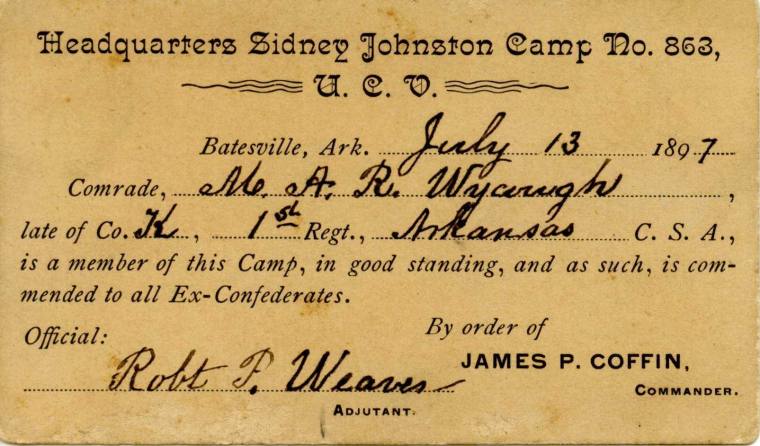 Headquarters Sidney Johnston Camp No. 863,
U. C. V.
Batesville, Ark. July 13 1897
Comrade, M. A. R. Wycough,
late of Co. K, 1st Regt., Arkansas C. S. A.,
is a member of this Camp, in good standing, and as such, is com-
mended to all Ex-Confederates.
Official: By order of
Robt P. Weaver JAMES P. COFFIN,
ADJUTANT. COMMANDER.